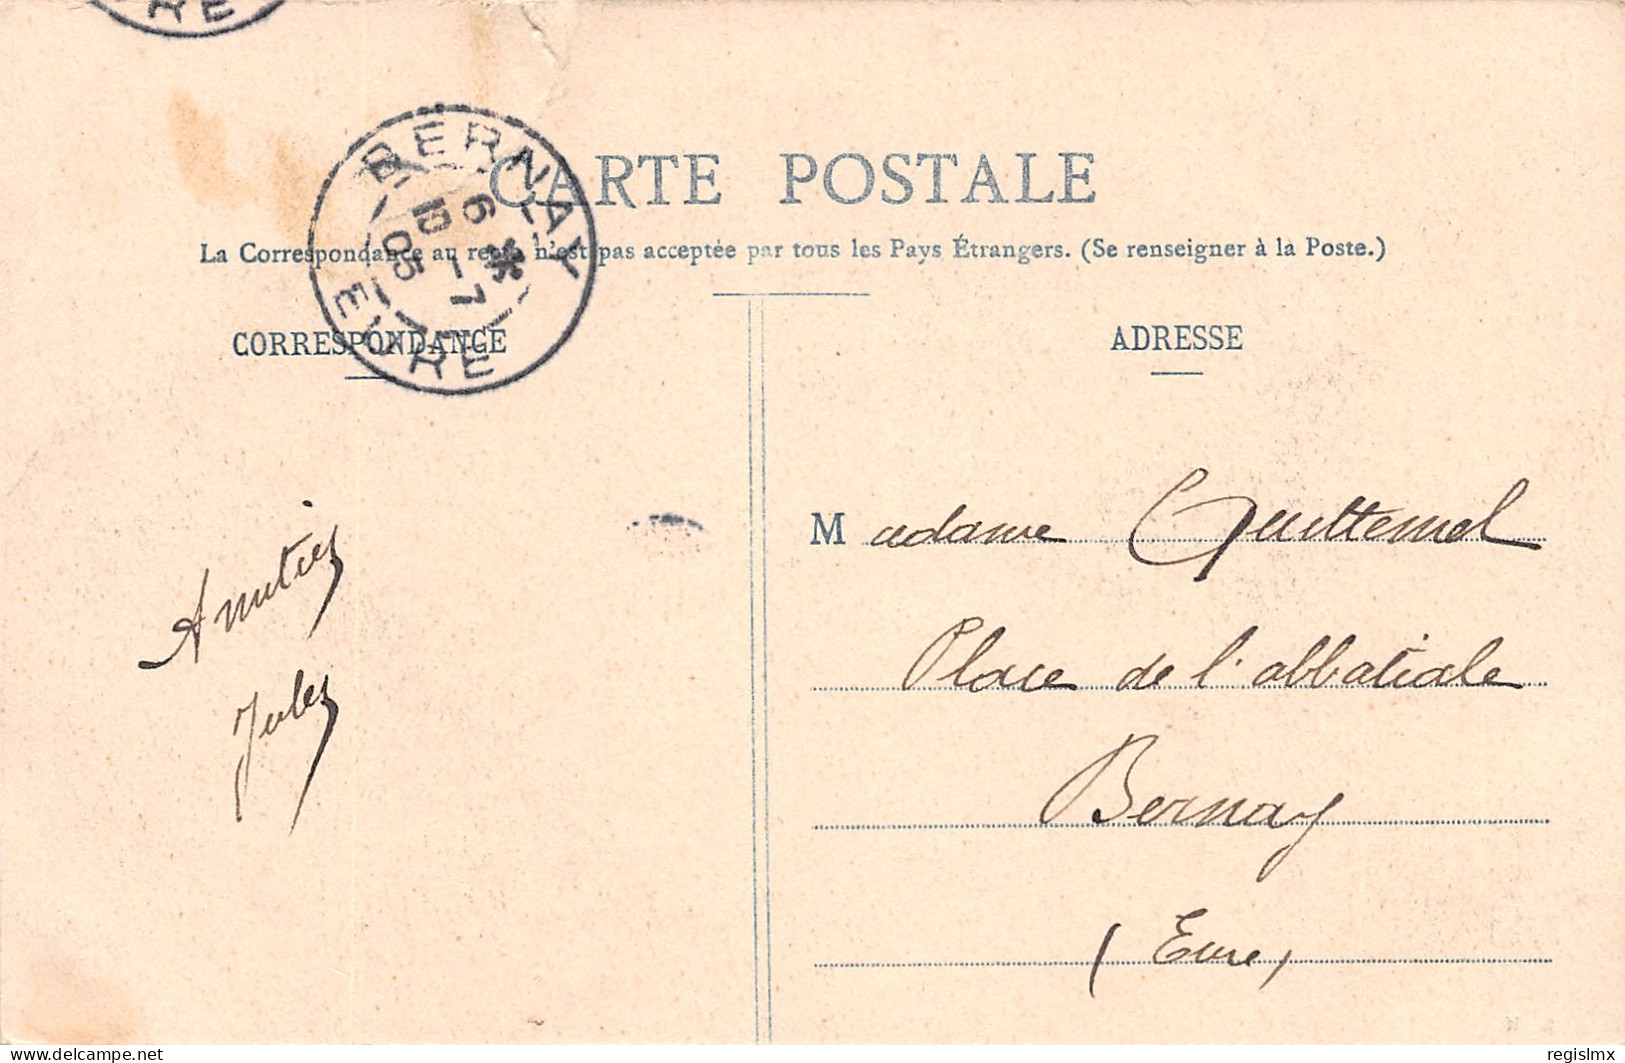 RE
BERNAY
6 *
10 -7
05
EURE
CARTE POSTALE
La Correspondance au recto n'est pas acceptée par tous les Pays Étrangers. (Se renseigner à la Poste.)
CORRESPONDANCE
ADRESSE
Amitiés
Jules
Madame
Place de l'abbatiale
Bernay
(Eure)
delcampe.net
regislmx